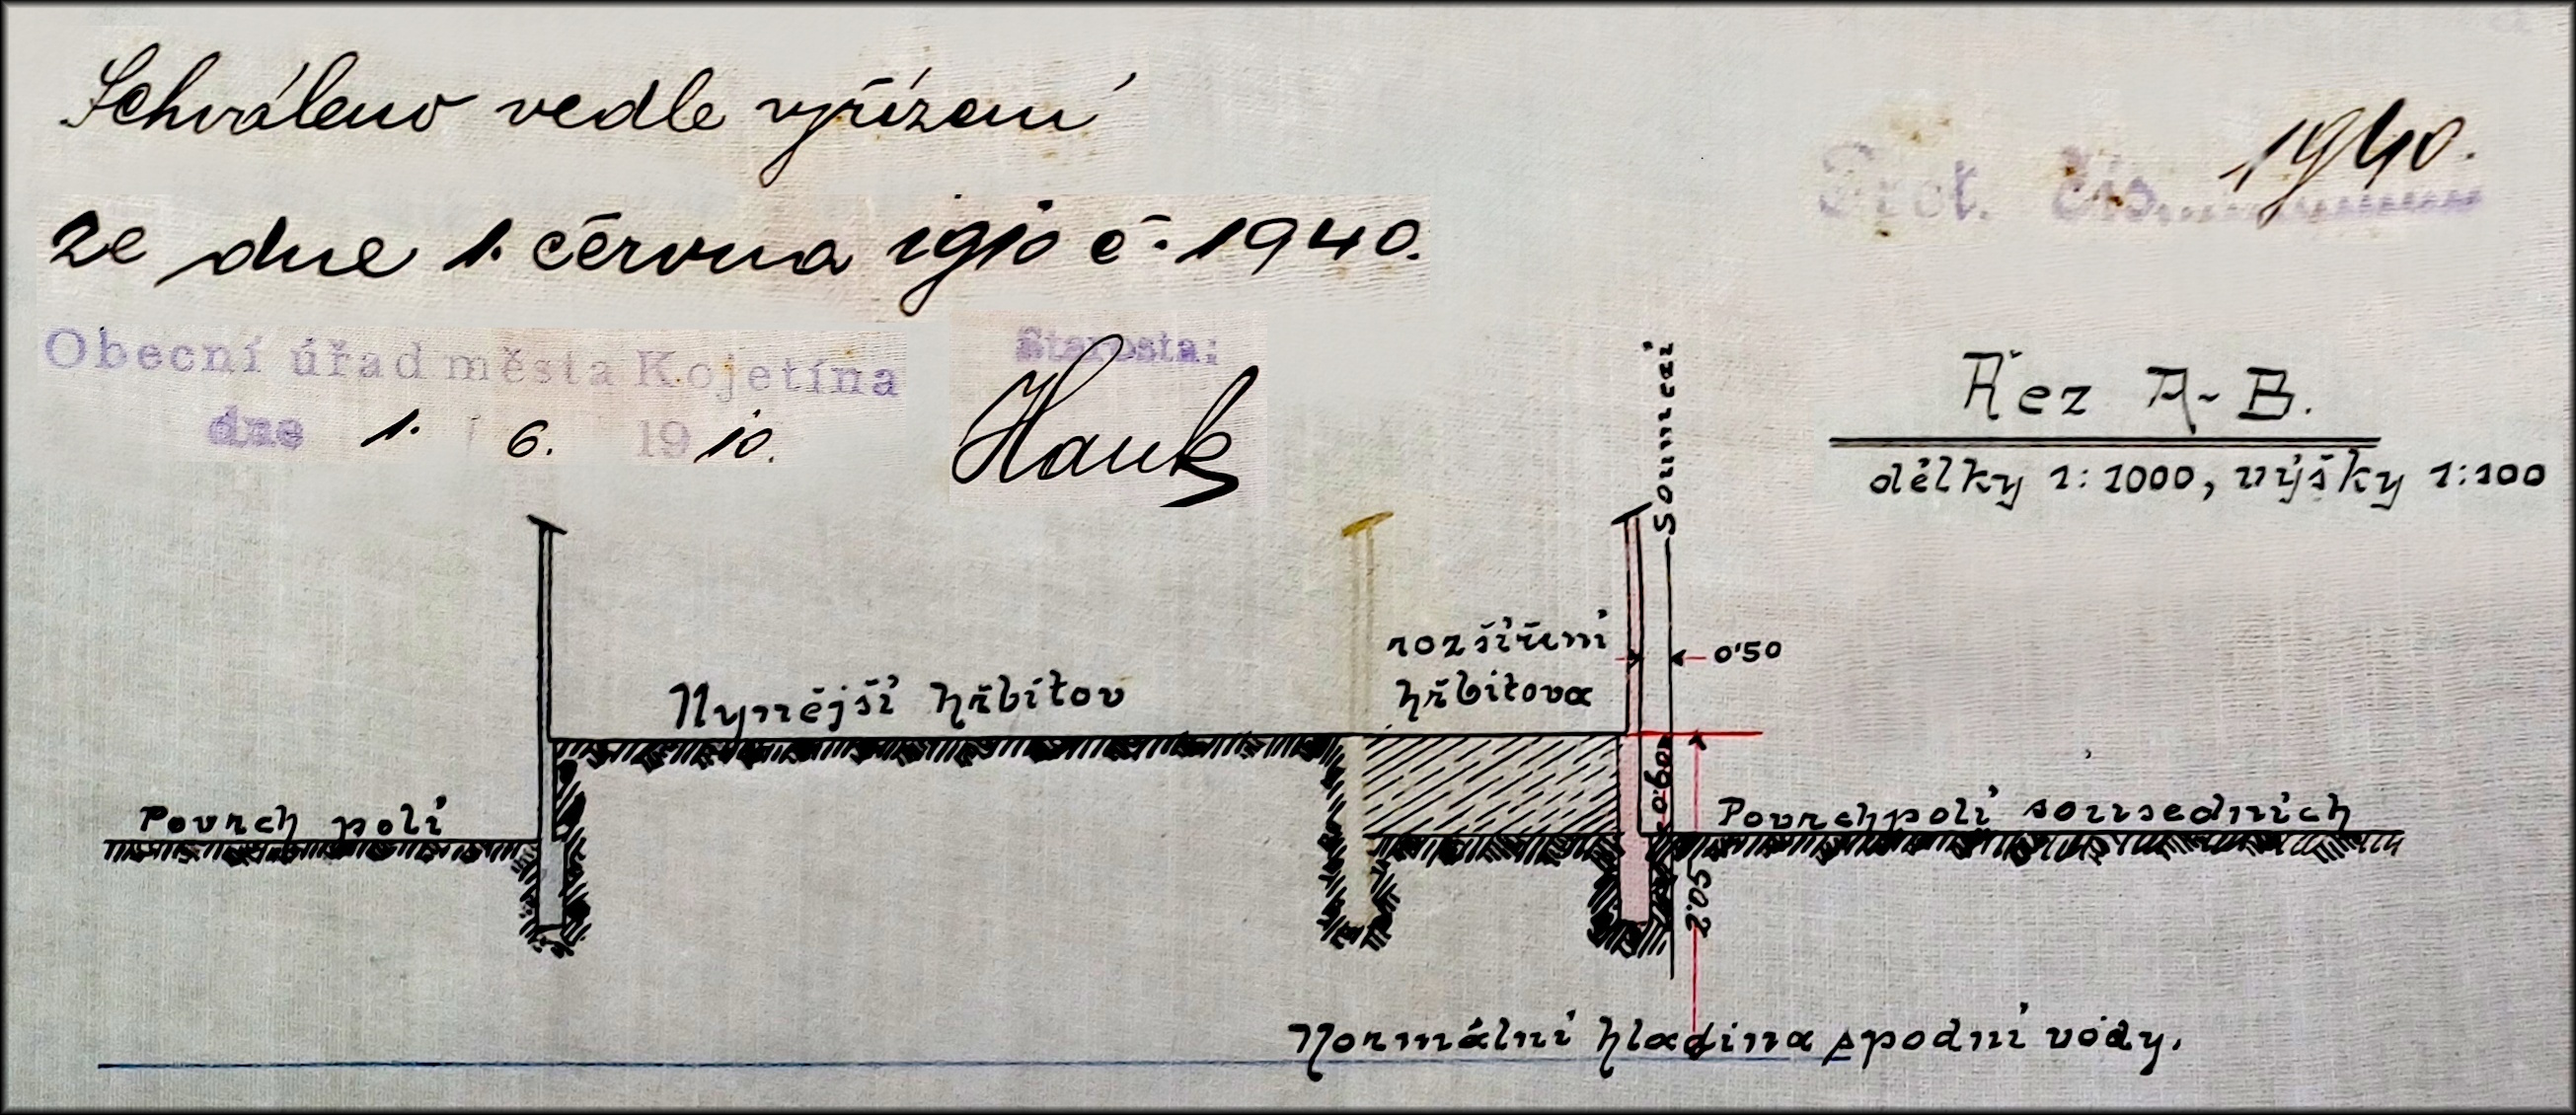 Schváleno vedle vyřízení
ze dne 1. června 1910 č. 1940.
Prot. čís. 1940.
Obecní úřad města Kojetína
dne 1. 6. 1910.
Starosta:
Hauk
Řez A-B.
délky 1:1000, výšky 1:100
Sousnezí
rozšíření
hřbitova
0'50
Nynější hřbitov
0.60
Povrch polí
Povrch polí sousedních
2.05
Normální hladina spodní vody.